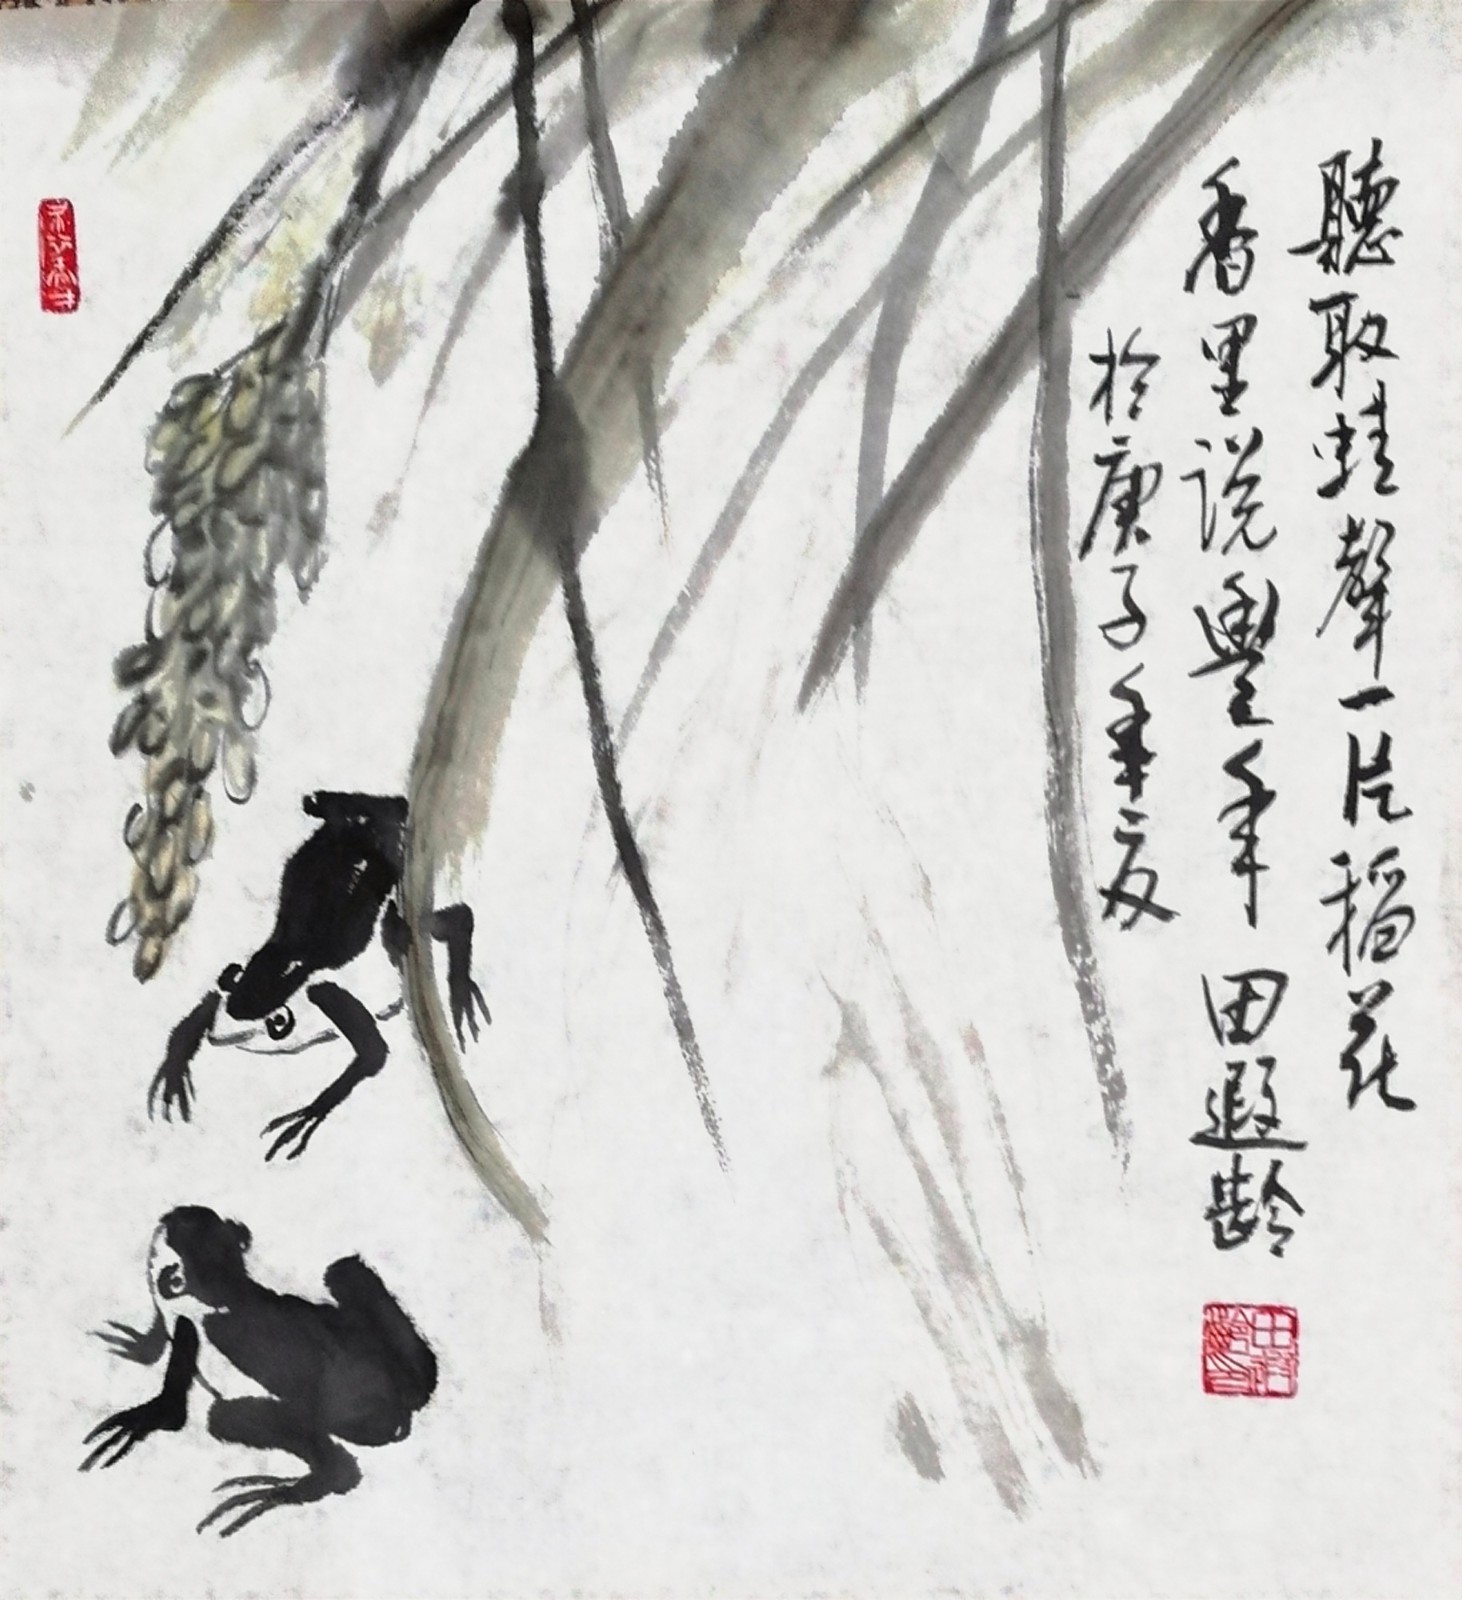 聽取蛙聲一片稻花
香里说豐年 田遐齡
於庚子年夏
田遐齡印